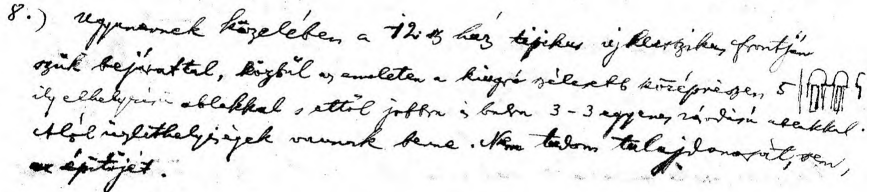 8.) Ugyanennek közelében a 12. sz ház tipikus új klasszikus frontján
szük bejárattal, középül az emeleten a kiugró szélesebb középrészen 5
ily elhelyezésü ablakkal s ettől jobbra is balra 3-3 egyenes záródású ablakkal.
Alól üzlethelyiségek vannak benne. Nem tudom tulajdonosát, sem,
az építőjét.